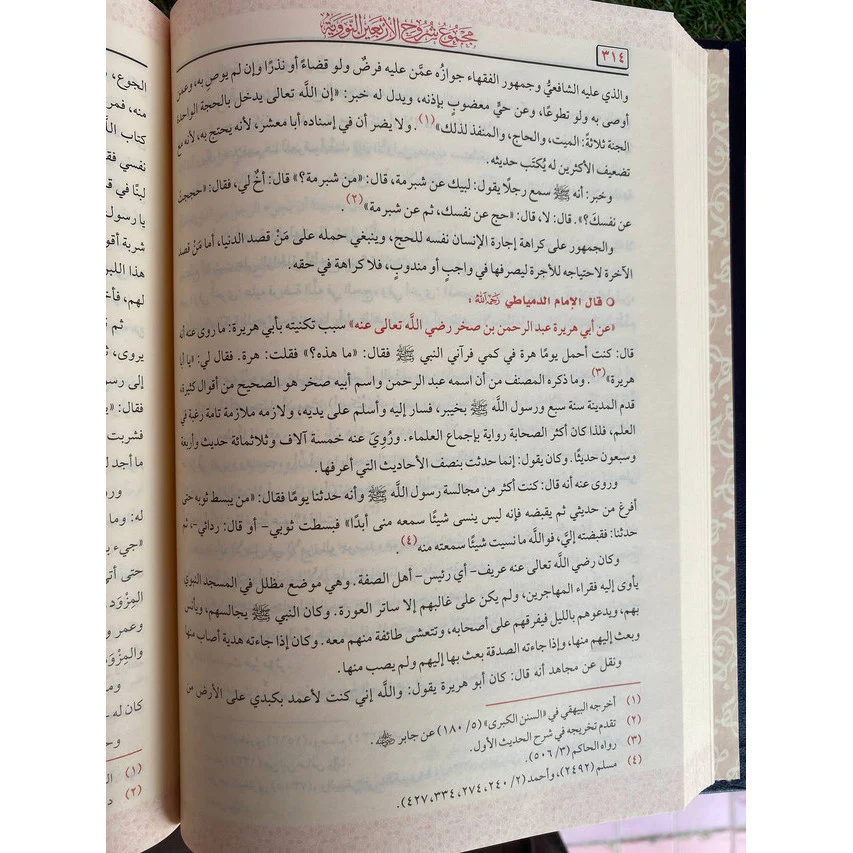 مجموع شروح الأربعين النووية
٣١٤
والذي عليه الشافعيُّ وجمهور الفقهاء جوازُه عمَّن عليه فرضٌ ولو قضاءً أو نذرًا وإن لم يوصِ به، وعمن
أوصى به ولو تطوعًا، وعن حيٍّ معضوبٍ بإذنه، ويدل له خبر: «إن اللَّه تعالى يدخل بالحجة الواحدة
الجنة ثلاثةً: الميت، والحاج، والمنفذ لذلك»(١). ولا يضر أن في إسناده أبا معشر، لأنه يحتج به، لأنه مع
تضعيف الأكثرين له يُكتَب حديثه.
وخبر: أنه ﷺ سمع رجلًا يقول: لبيك عن شبرمة، قال: «من شبرمة؟» قال: أخٌ لي، فقال: «حججتَ
عن نفسكَ؟». قال: لا، قال: «حج عن نفسك، ثم عن شبرمة»(٢).
والجمهور على كراهة إجارة الإنسان نفسه للحج، وينبغي حمله على مَنْ قصد الدنيا، أما مَنْ قصد
الآخرة لاحتياجه للأجرة ليصرفها في واجبٍ أو مندوبٍ، فلا كراهة في حقه.
○ قال الإمام الدمياطي رحمه الله :
«عن أبي هريرة عبد الرحمن بن صخر رضي اللَّه تعالى عنه» سبب تكنيته بأبي هريرة: ما روى عنه أنه
قال: كنت أحمل يومًا هرة في كمي فرآني النبي ﷺ فقال: «ما هذه؟» فقلت: هرة. فقال لي: «يا أبا
هريرة»(٣). وما ذكره المصنف من أن اسمه عبد الرحمن واسم أبيه صخر هو الصحيح من أقوال كثيرة،
قدم المدينة سنة سبع ورسول اللَّه ﷺ بخيبر، فسار إليه وأسلم على يديه، ولازمه ملازمة تامة رغبة في
العلم، فلذا كان أكثر الصحابة رواية بإجماع العلماء. ورُوِيَ عنه خمسة آلاف وثلاثمائة حديث وأربعة
وسبعون حديثًا. وكان يقول: إنما حدثت بنصف الأحاديث التي أعرفها.
وروى عنه أنه قال: كنت أكثر من مجالسة رسول اللَّه ﷺ وأنه حدثنا يومًا فقال: «من يبسط ثوبه حتى
أفرغ من حديثي ثم يقبضه فإنه ليس ينسى شيئًا سمعه منى أبدًا» فبسطت ثوبي- أو قال: ردائي-، ثم
حدثنا: فقبضته إليَّ، فواللَّه ما نسيت شيئًا سمعته منه(٤).
وكان رضي اللَّه تعالى عنه عريف- أي رئيس- أهل الصفة. وهي موضع مظلل في المسجد النبوي
يأوى إليه فقراء المهاجرين، ولم يكن على غالبهم إلا ساتر العورة. وكان النبي ﷺ يجالسهم، ويأنس
بهم، ويدعوهم بالليل فيفرقهم على أصحابه، وتتعشى طائفة منهم معه. وكان إذا جاءته هدية أصاب منها
وبعث إليهم منها، وإذا جاءته الصدقة بعث بها إليهم ولم يصب منها.
ونقل عن مجاهد أنه قال: كان أبو هريرة يقول: واللَّه إني كنت لأعمد بكبدي على الأرض من
(١) أخرجه البيهقي في «السنن الكبرى» (٥/ ١٨٠) عن جابر رضي الله عنه.
(٢) تقدم تخريجه في شرح الحديث الأول.
(٣) رواه الحاكم (٣/ ٥٠٦).
(٤) مسلم (٢٤٩٢)، وأحمد (٢/ ٢٤٠، ٢٧٤، ٣٣٤، ٤٢٧).
الجوع،
منه، فمر
كتاب
نفسي فق
لبنًا في
يا رسول
شربة أقو
هذا اللبن
لهم،
ثم
يروى،
إلى رس
فقال: «
فشربت
ما أجد
ورو
له: وما
«جيء
حتى أتى
المِزْوَد
وعمر و
والمِزْوَد
ومـ
كان له -
وحـ
(١)
(٢)